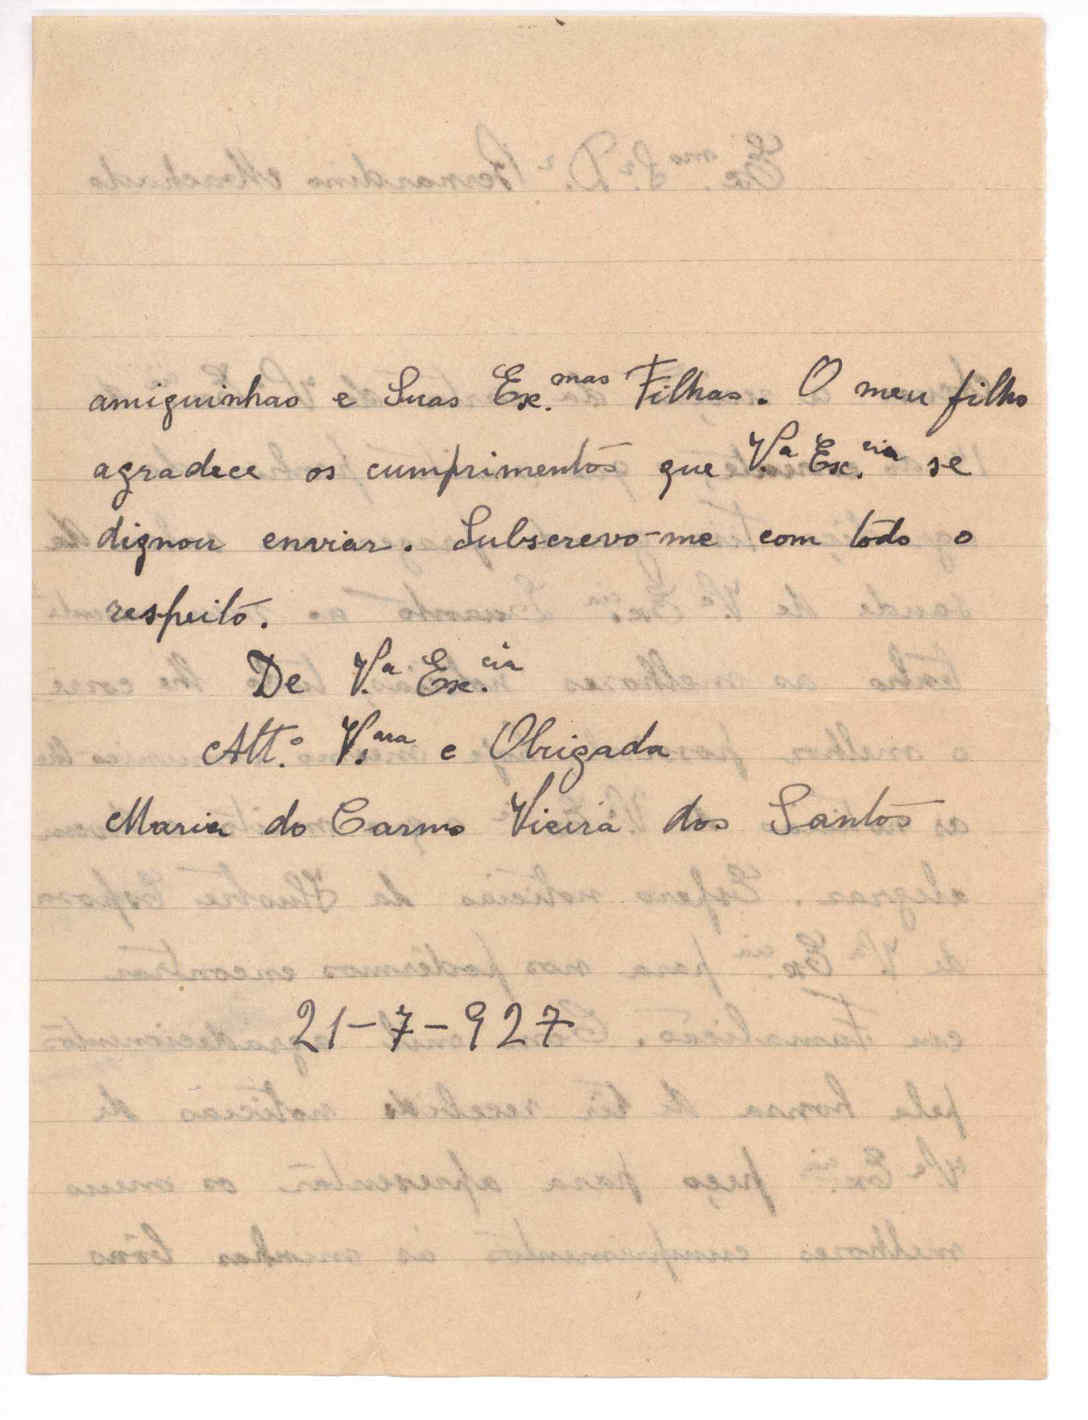 amiguinhas e Suas Ex.mas Filhas. O meu filho
agradece os cumprimentos que V.a Ex.cia se
dignou enviar. Subscrevo-me com todo o
respeito.
De V.a Ex.cia
Att.o V.ara e Obrigada
Maria do Carmo Vieira dos Santos
21-7-927